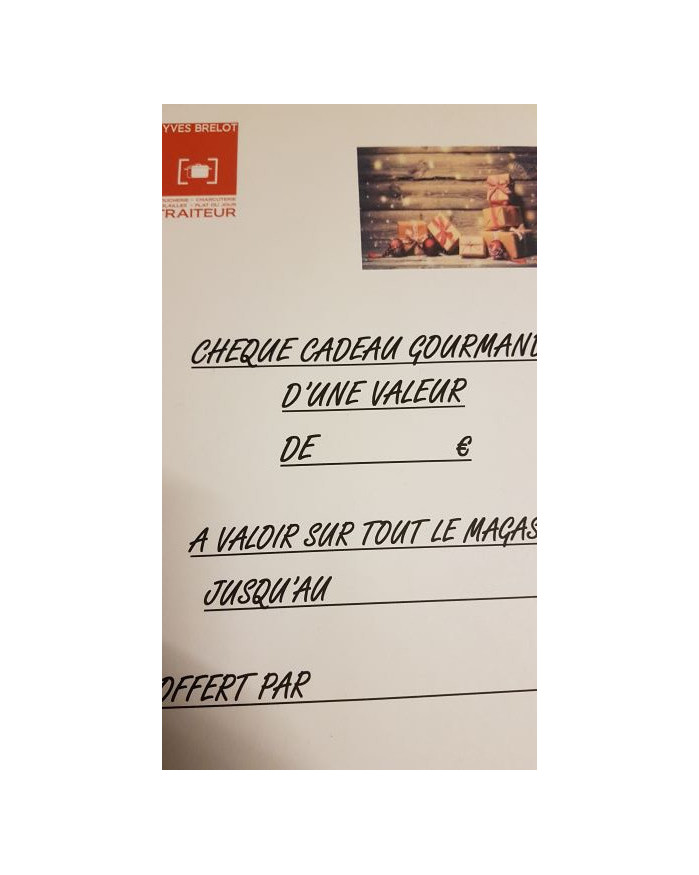 YVES BRELOT
OUCHERIE - CHARCUTERIE
OLAILLES - PLAT DU JOUR
TRAITEUR
CHEQUE CADEAU GOURMAND
D'UNE VALEUR
DE €
A VALOIR SUR TOUT LE MAGAS
JUSQU'AU
OFFERT PAR